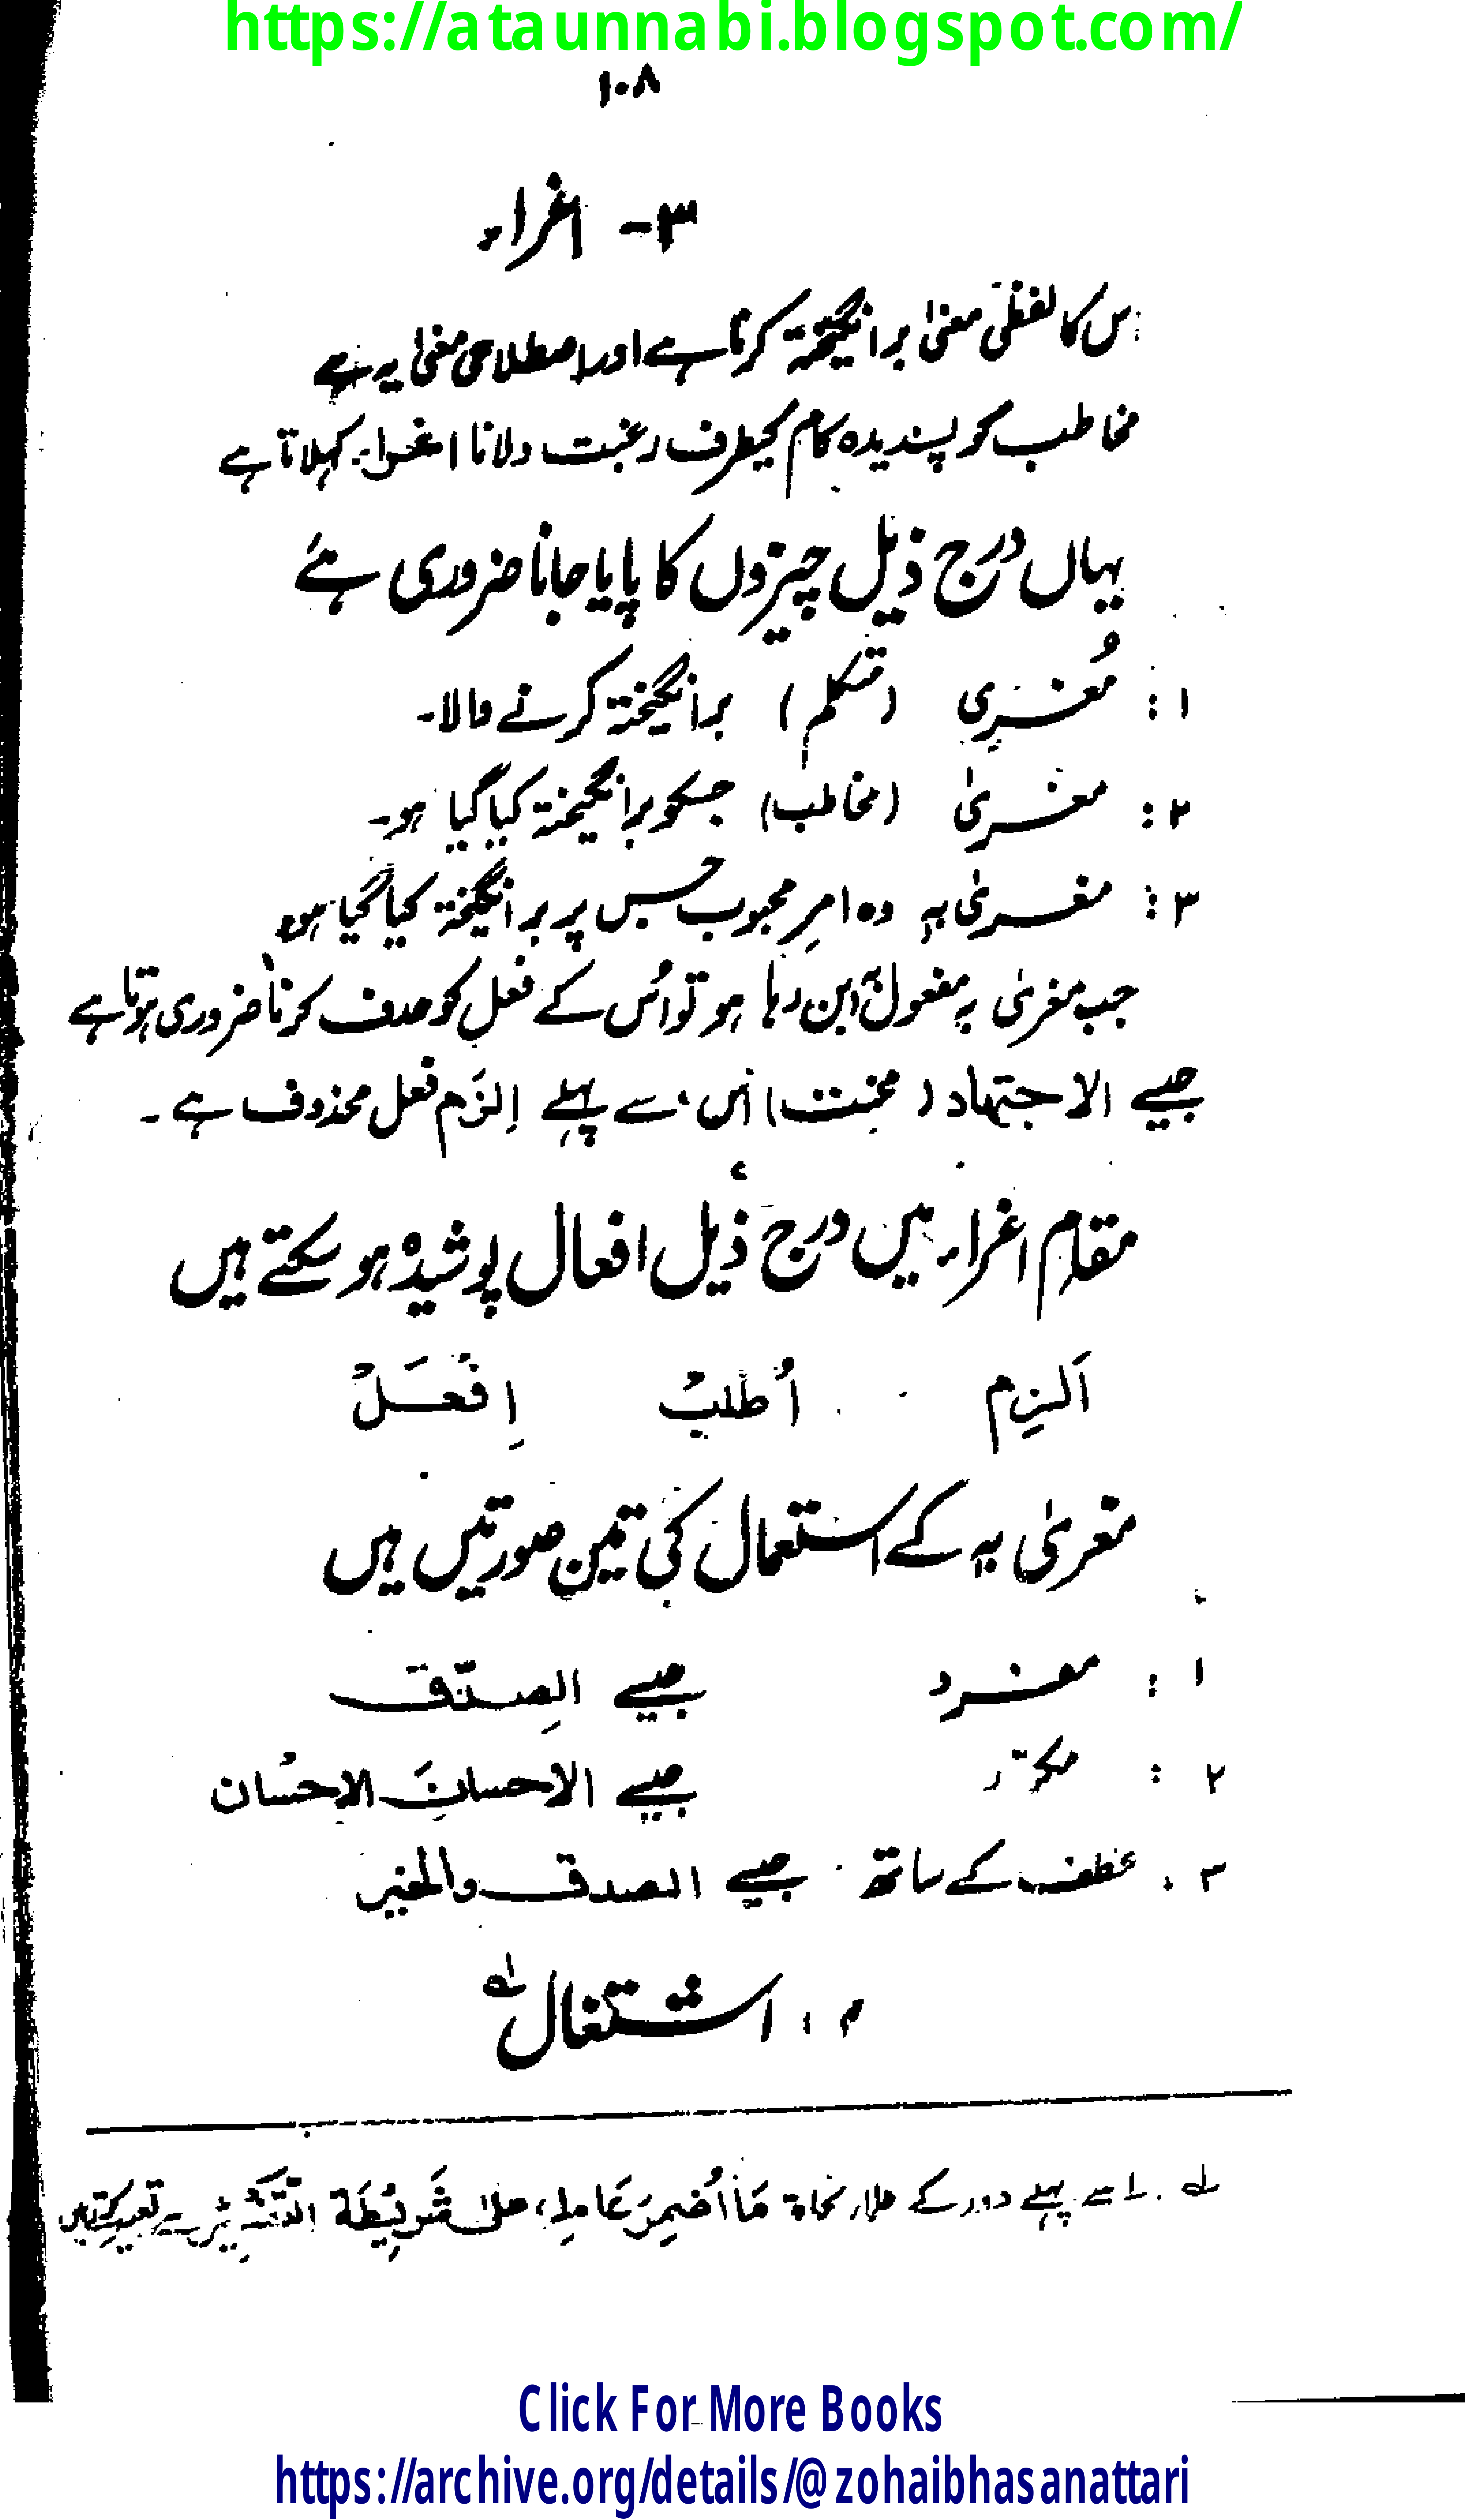 https://ataunnabi.blogspot.com/
۱۰۸
۳- اغراء
اس کا لفظی معنیٰ برانگیختہ کرنا ہے اور اصطلاحی معنیٰ یہ ہے
مخاطب کو پسندیدہ کام کیطرف رغبت دلانا اغراء کہلاتا ہے
یہاں درج ذیل چیزوں کا پایا جانا ضروری ہے
۱: مُغری (متکلم) برانگیختہ کرنے والا۔
۲: مغریٰ (مخاطب) جسکو برانگیختہ کیا گیا ہو۔
۳: مغریٰ بہٖ وہ امرِ محبوب جس پر برانگیختہ کیا گیا ہو
جب مغریٰ بہ مفعول بہٖ بن رہا ہو تو اُس کے فعل کو حذف کرنا ضروری ہوتا ہے
جیسے الاجتہاد (محنت) اس سے پہلے اِلزَم فعل محذوف ہے۔
مقام اغراء میں درج ذیل افعال پوشیدہ ہو سکتے ہیں
اَلزِم اُطلبْ اِفْعَلْ
مغریٰ بہٖ کے استعمال کی تین صورتیں ہیں
۱: مفرد جیسے الصِدق
۲: مکرّر جیسے الاحسانَ الاحسان
۳. عطف کے ساتھ جیسے الصدق والخیر
۴: اشتغال لہ
لہ اسے پہلے دور کے علماء نحاۃ مَا اُضْمِرَ عَامِلُہ علیٰ شَرِیْطَۃِ التَّفْسِیْر سے تعبیر کرتے ہیں
Click For More Books
https://archive.org/details/@zohaibhasanattari